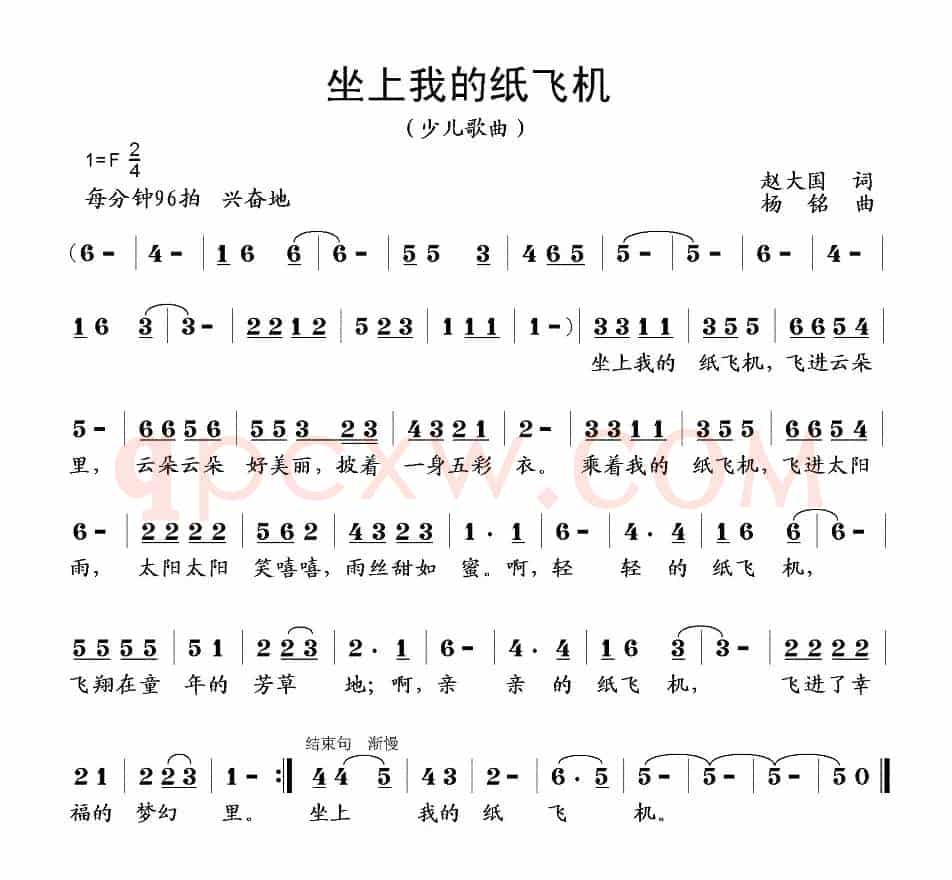 坐上我的纸飞机
（少儿歌曲）
1=F 2/4
每分钟96拍 兴奋地
赵大国 词
杨铭 曲
（6 - | 4 - | 1 6 6 | 6 - | 5 5 3 | 4 6 5 | 5 - | 5 - | 6 - | 4 - |
1 6 3 | 3 - | 2 2 1 2 | 5 2 3 | 1 1 1 | 1 - ）| 3 3 1 1 | 3 5 5 | 6 6 5 4 |
坐上我的 纸飞机，飞进云朵
5 - | 6 6 5 6 | 5 5 3 2 3 | 4 3 2 1 | 2 - | 3 3 1 1 | 3 5 5 | 6 6 5 4 |
里， 云朵云朵 好美丽，披着 一身五彩 衣。 乘着我的 纸飞机，飞进太阳
qpcxw.COM
6 - | 2 2 2 2 | 5 6 2 | 4 3 2 2 | 1 · 1 | 6 - | 4 · 4 | 1 6 6 | 6 - |
雨， 太阳太阳 笑嘻嘻，雨丝甜如 蜜。啊，轻 轻的纸飞 机，
5 5 5 5 | 5 1 | 2 2 3 | 2 · 1 | 6 - | 4 · 4 | 1 6 3 | 3 - | 2 2 2 2 |
飞翔在童 年的 芳草 地；啊，亲 亲的纸飞 机， 飞进了幸
结束句 渐慢
2 1 | 2 2 3 | 1 - :‖ 4 4 5 | 4 3 | 2 - | 6 · 5 | 5 - | 5 - | 5 - | 5 0 ‖
福的 梦幻 里。 坐上 我的 纸 飞 机。